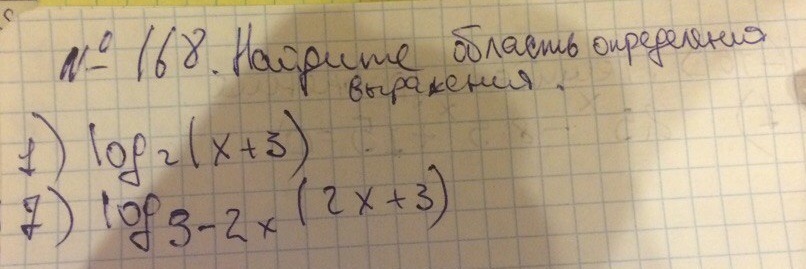 № 168. Найдите область определения
выражения.
1) log₂(x+3)
7) log₃₋₂ₓ(2x+3)